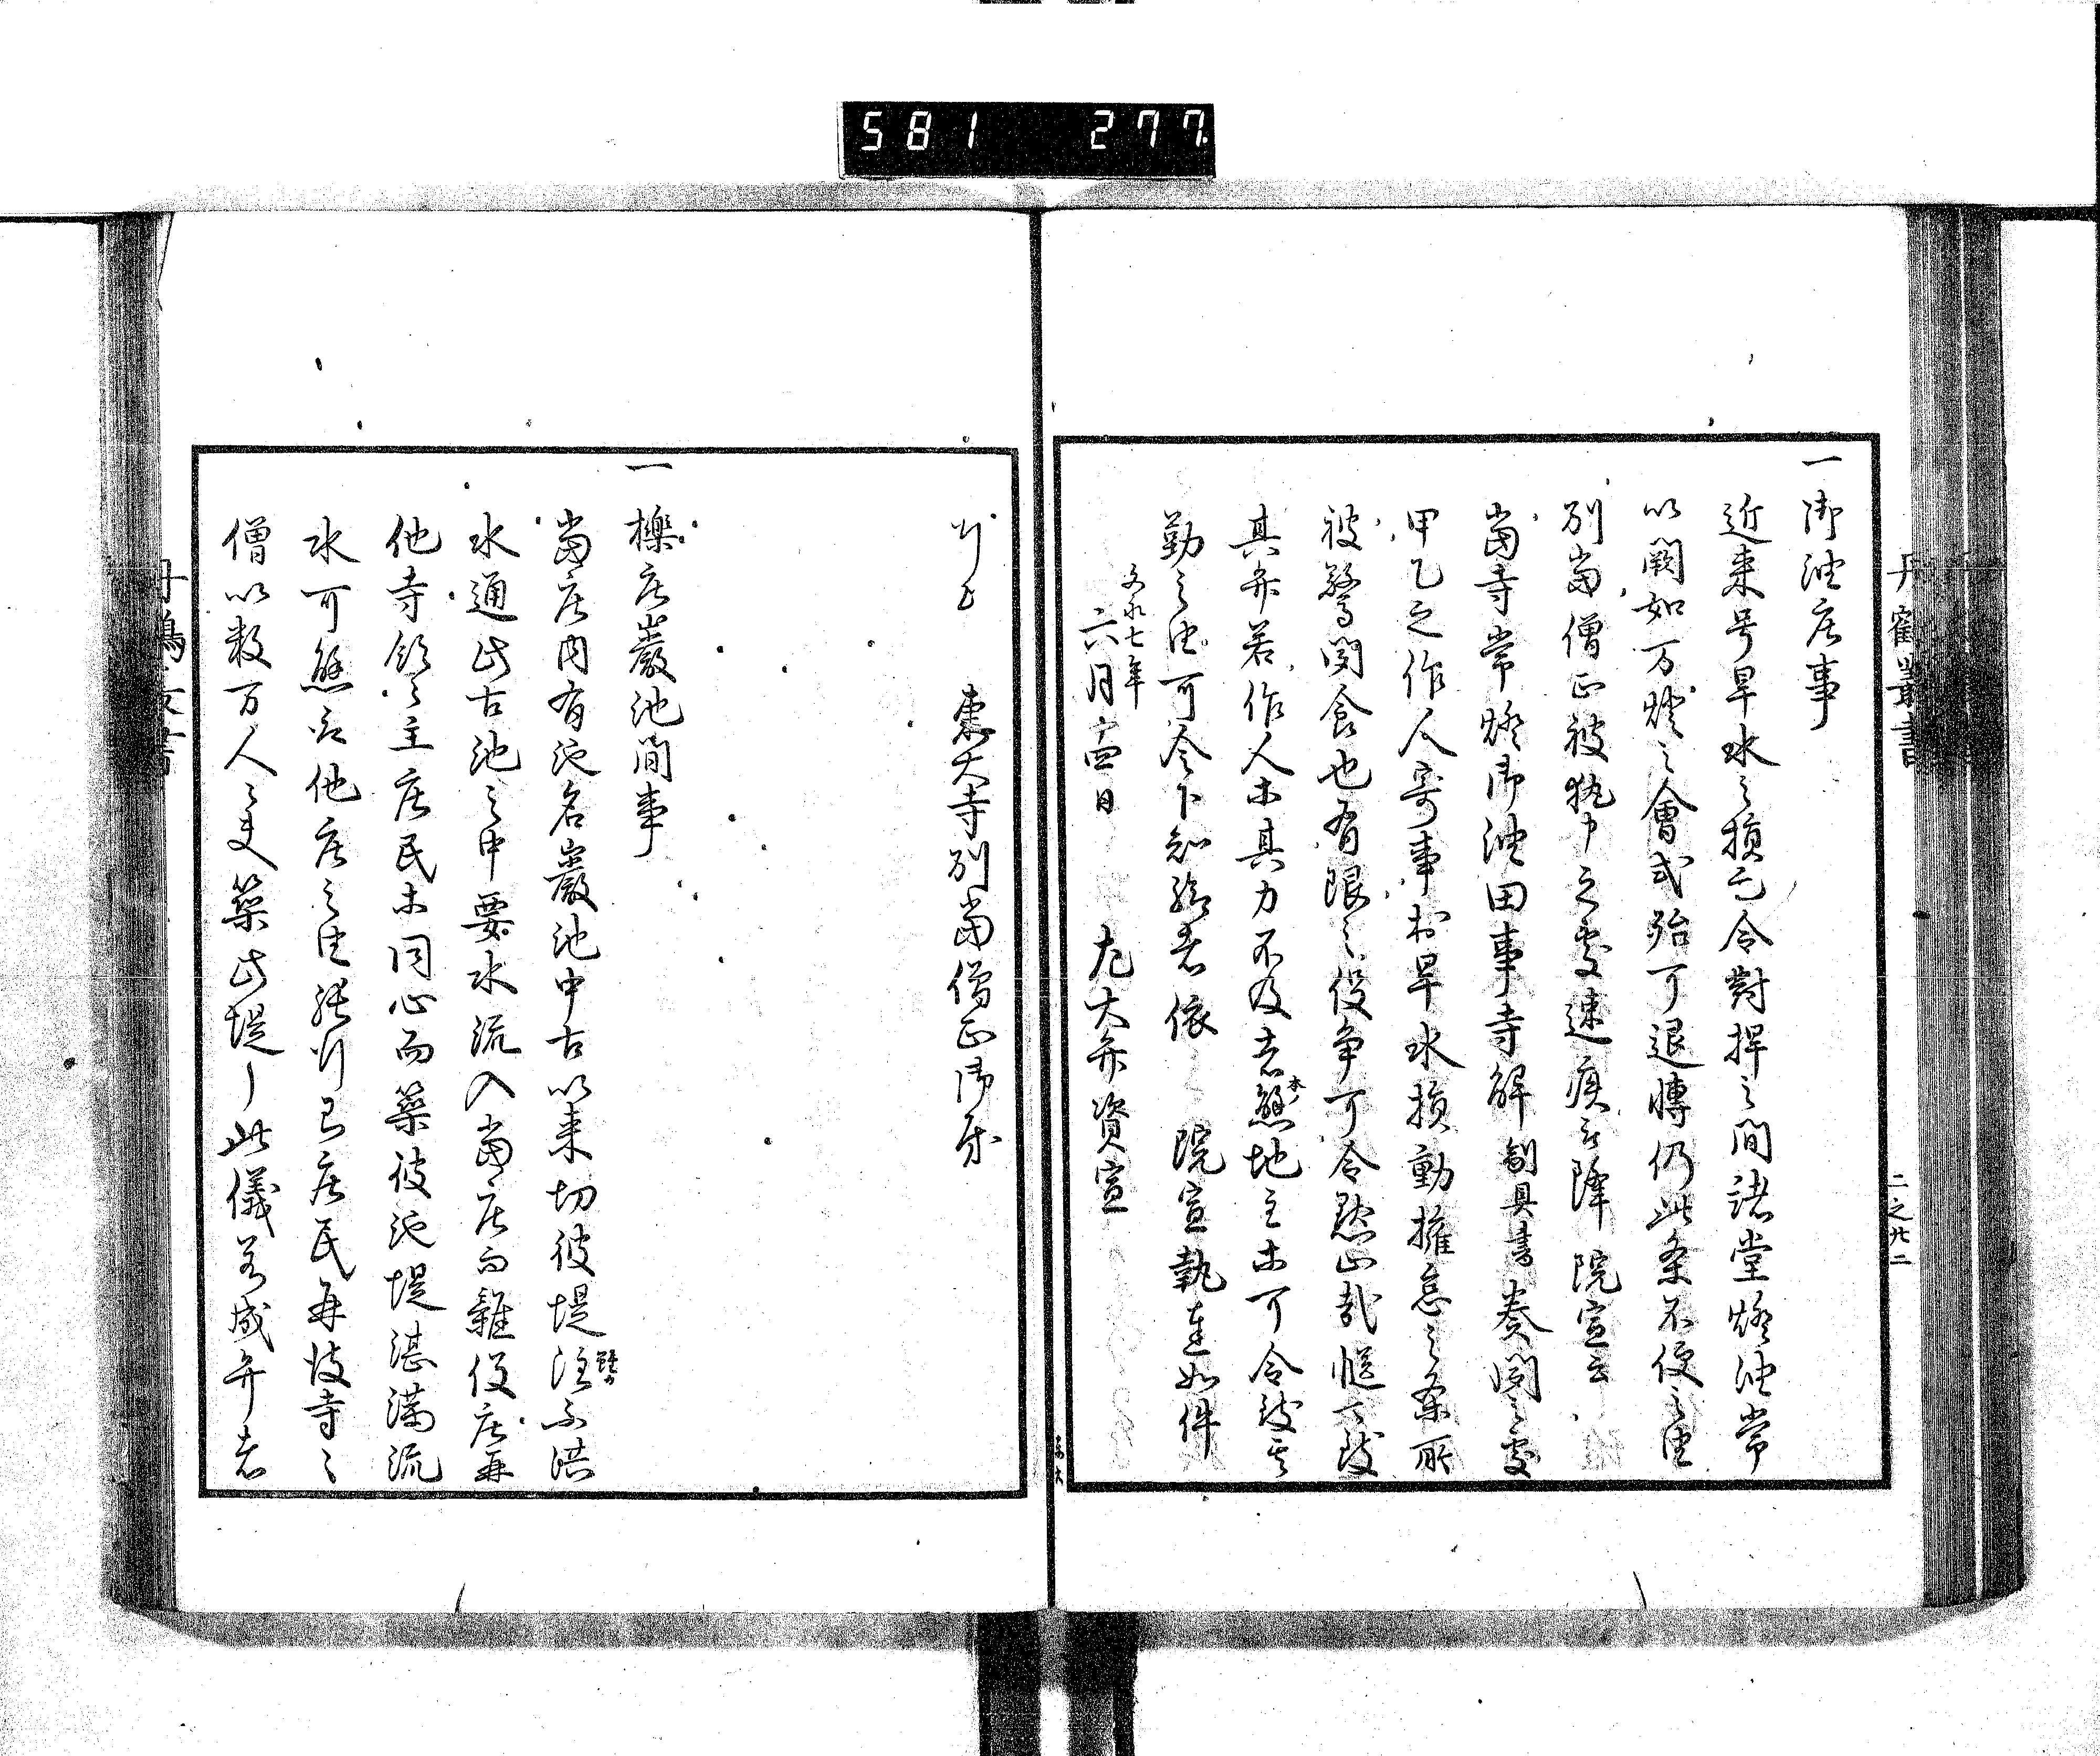 581 277
丹鶴叢書
二之廿二
一御油庄事
近来号旱水之損亡令對捍之間諸堂燈油常
以闕如万燈之會式殆可退轉仍此条不便之由
別當僧正被執申之處速疾被降 院宣云
當寺常燈御油田事寺解副具書奏聞之處
甲乙之作人寄事於旱水損動擁怠之条所
被驚聞食也有限之役争可令黙止哉慥可致
其弁若作人木其力不及者懸地主木可令致其
勤之由可令下知給者依 院宣執達如件
文永七年
六月十四日 左大弁資宣
東大寺別當僧正御房
一櫟庄巖池間事
當庄内有池名巖池中古以来切彼堤注下洪
水通此古池之中要水流入當庄而雜役庄再
他寺領之主庄民木同心而築彼池堤湛満流
水可懸于他庄之由結
僧以数万人之夫築此堤了此儀若成弁者